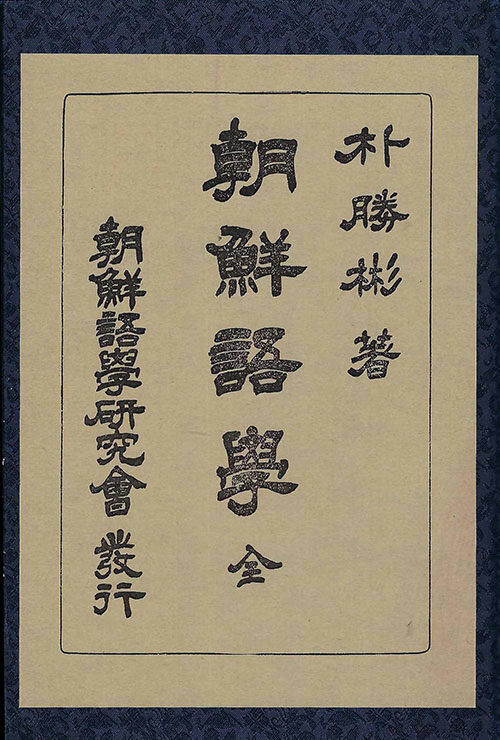 朴勝彬 著
朝鮮語學 全
朝鮮語學硏究會 發行